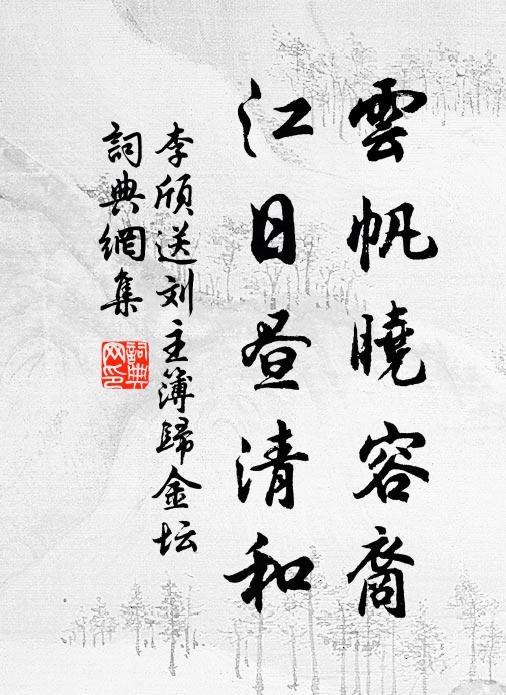 雲帆曉容裔
江日昼清和
李頎送刘主簿歸金坛
詞典網集
詞典网印